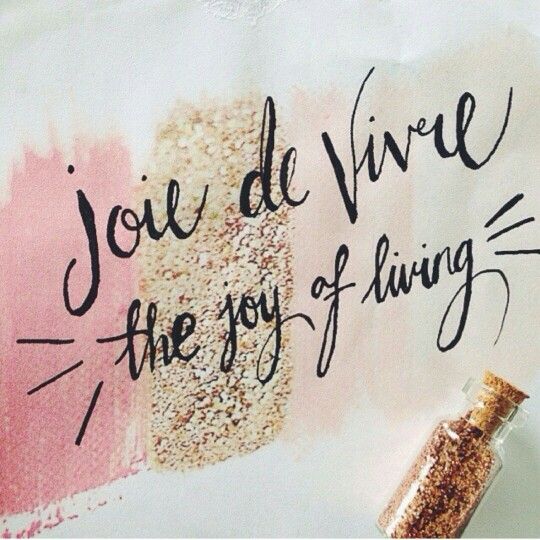 joie de Vivre
the joy of living